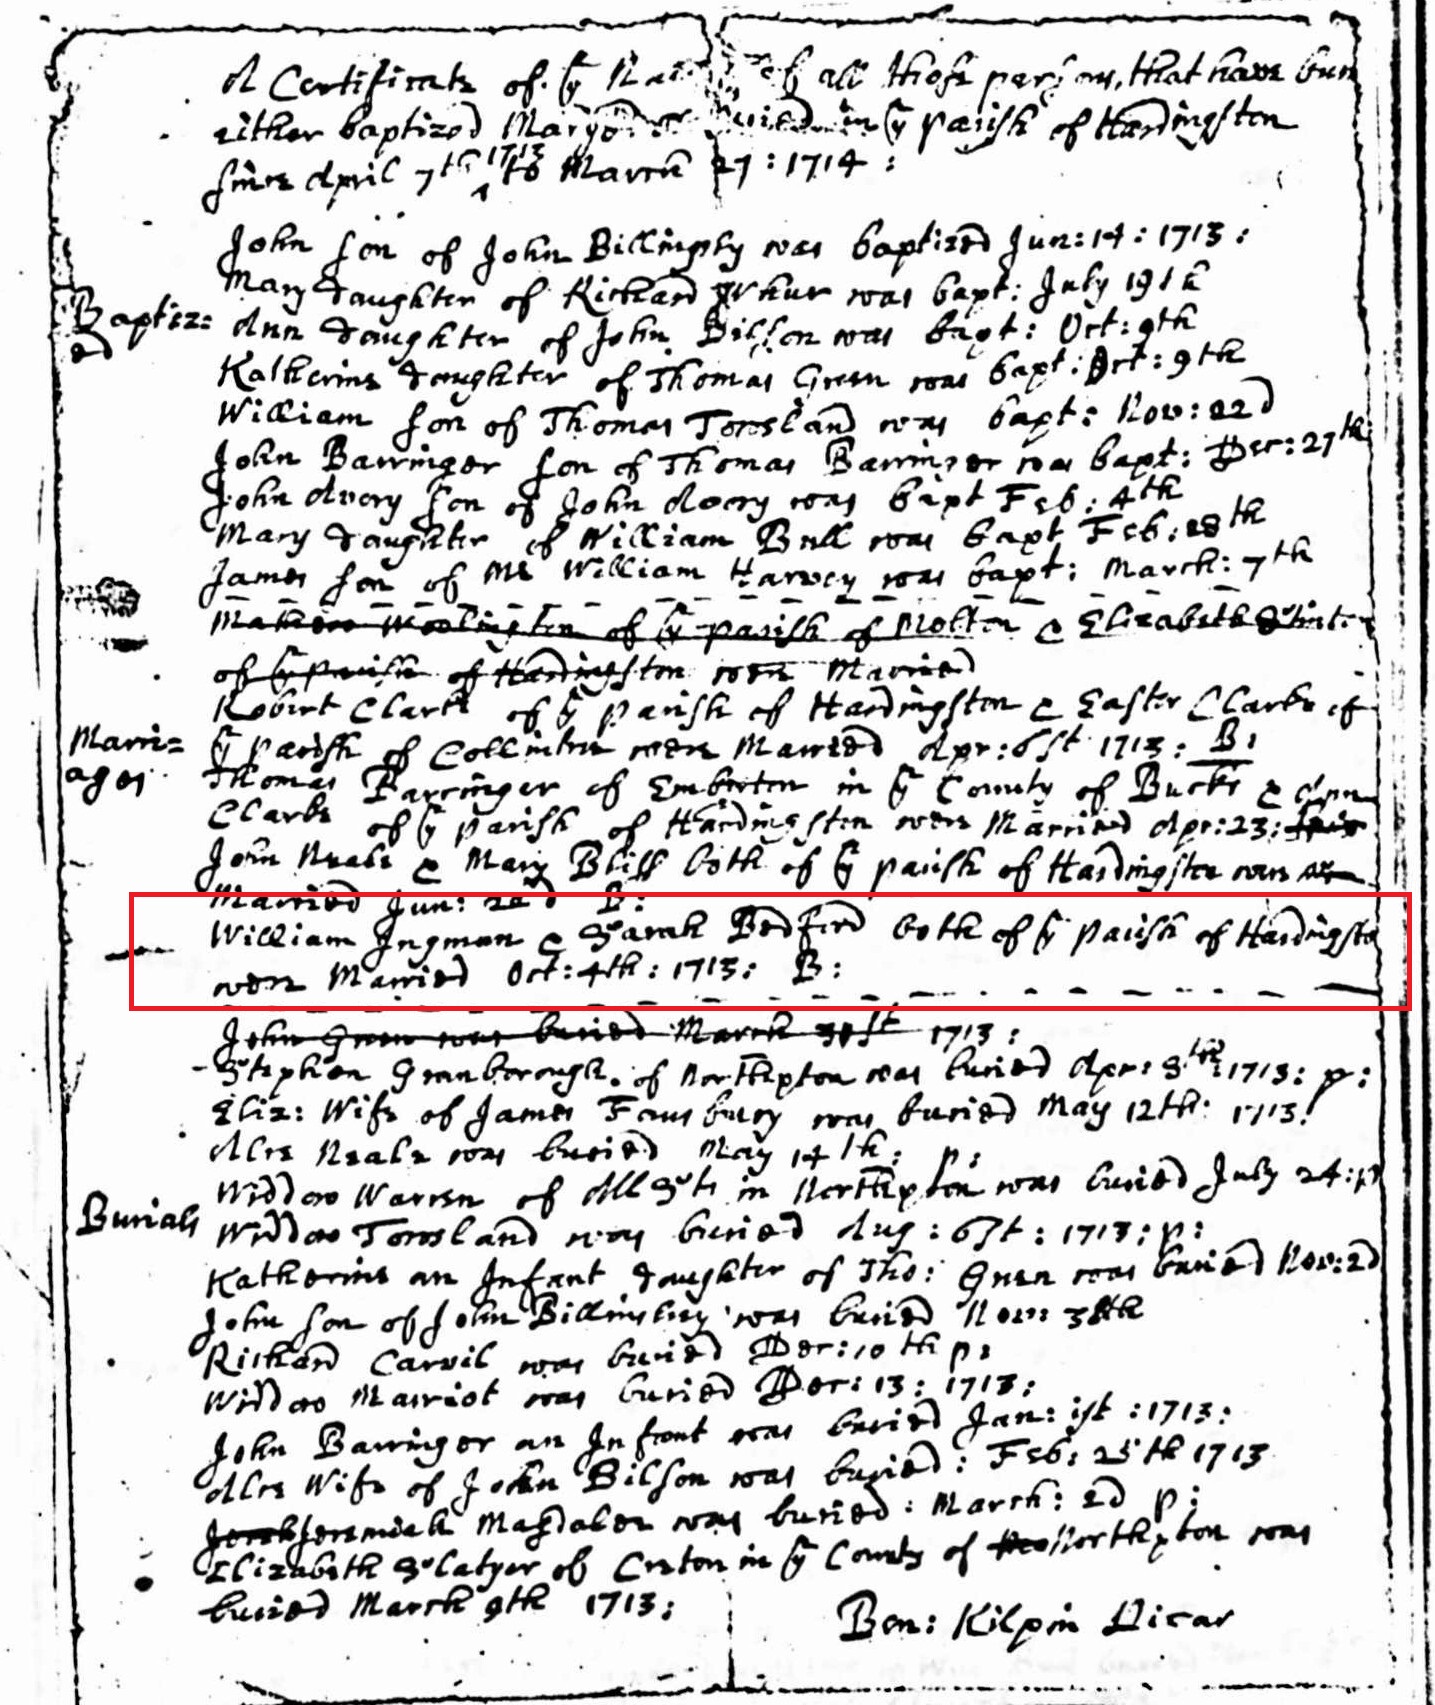 A Certificate of ye Na of all those persons, that have been
either baptized Maryed or buried in ye parish of Hardingston
since April 7th 1713 to March 27: 1714:
John son of John Billingsby was baptized Jun: 14: 1713:
Mary daughter of Richard was bapt: July 19th
Baptiz=
ed
Ann daughter of John Billson was bapt: Oct: 9th
Katherine daughter of Thomas Green was bapt: Oct: 9th
William son of Thomas Towsland was bapt: Nov: 22d
John Barringer son of Thomas Barringer was bapt: Dec: 27th
John Avery son of John Avery was bapt Feb: 4th
Mary daughter of William Bull was bapt Feb: 28th
James son of Mr William Harvey was bapt: March: 7th
of ye parish of & Elizabeth
of ye parish of Hardingston were Married
Marri=
ages
Robert Clarke of ye parish of Hardingston & Easter Clarke of
ye parish of were Married Apr: 6st 1713: B:
Thomas Barringer of Emberton in ye County of Bucks & Ann
Clarke of ye parish of Hardingston were Married Apr: 23:
John Neale & Mary Bliss both of ye parish of Hardingston were
Married Jun: 22d B:
William Ingman & Sarah Bedford both of ye parish of Hardingsto
were Married Oct: 4th: 1713: B:
John Green was buried March 31st 1713:
Stephen Granborough of Northpton was buried Apr: 1713: p:
Eliz: Wife of James Fausbury was buried May 12th: 1713:
Alce Neale was buried May 14th: p:
Widdow Warren of All Sts in Northpton was buried July 24: p
Burials
Widdow Towsland was buried Aug: 6st: 1713: p:
Katherine an Infant daughter of Tho: Green was buried Nov: 2d
John son of John Billinsbey was buried Nov:
Richard Carvil was buried Dec: 10th p:
Widdow Marriot was buried Dec: 13: 1713:
John Barringer an Infant was buried Jan: 1st: 1713:
Alce Wife of John Bilson was buried: Feb: 25th 1713
Jeremiah Magdalen was buried: March: 2d p:
Elizabeth Slatyer of Creton in ye County of Northpton was
buried March 9th 1713:
Ben: Kilpin Vicar